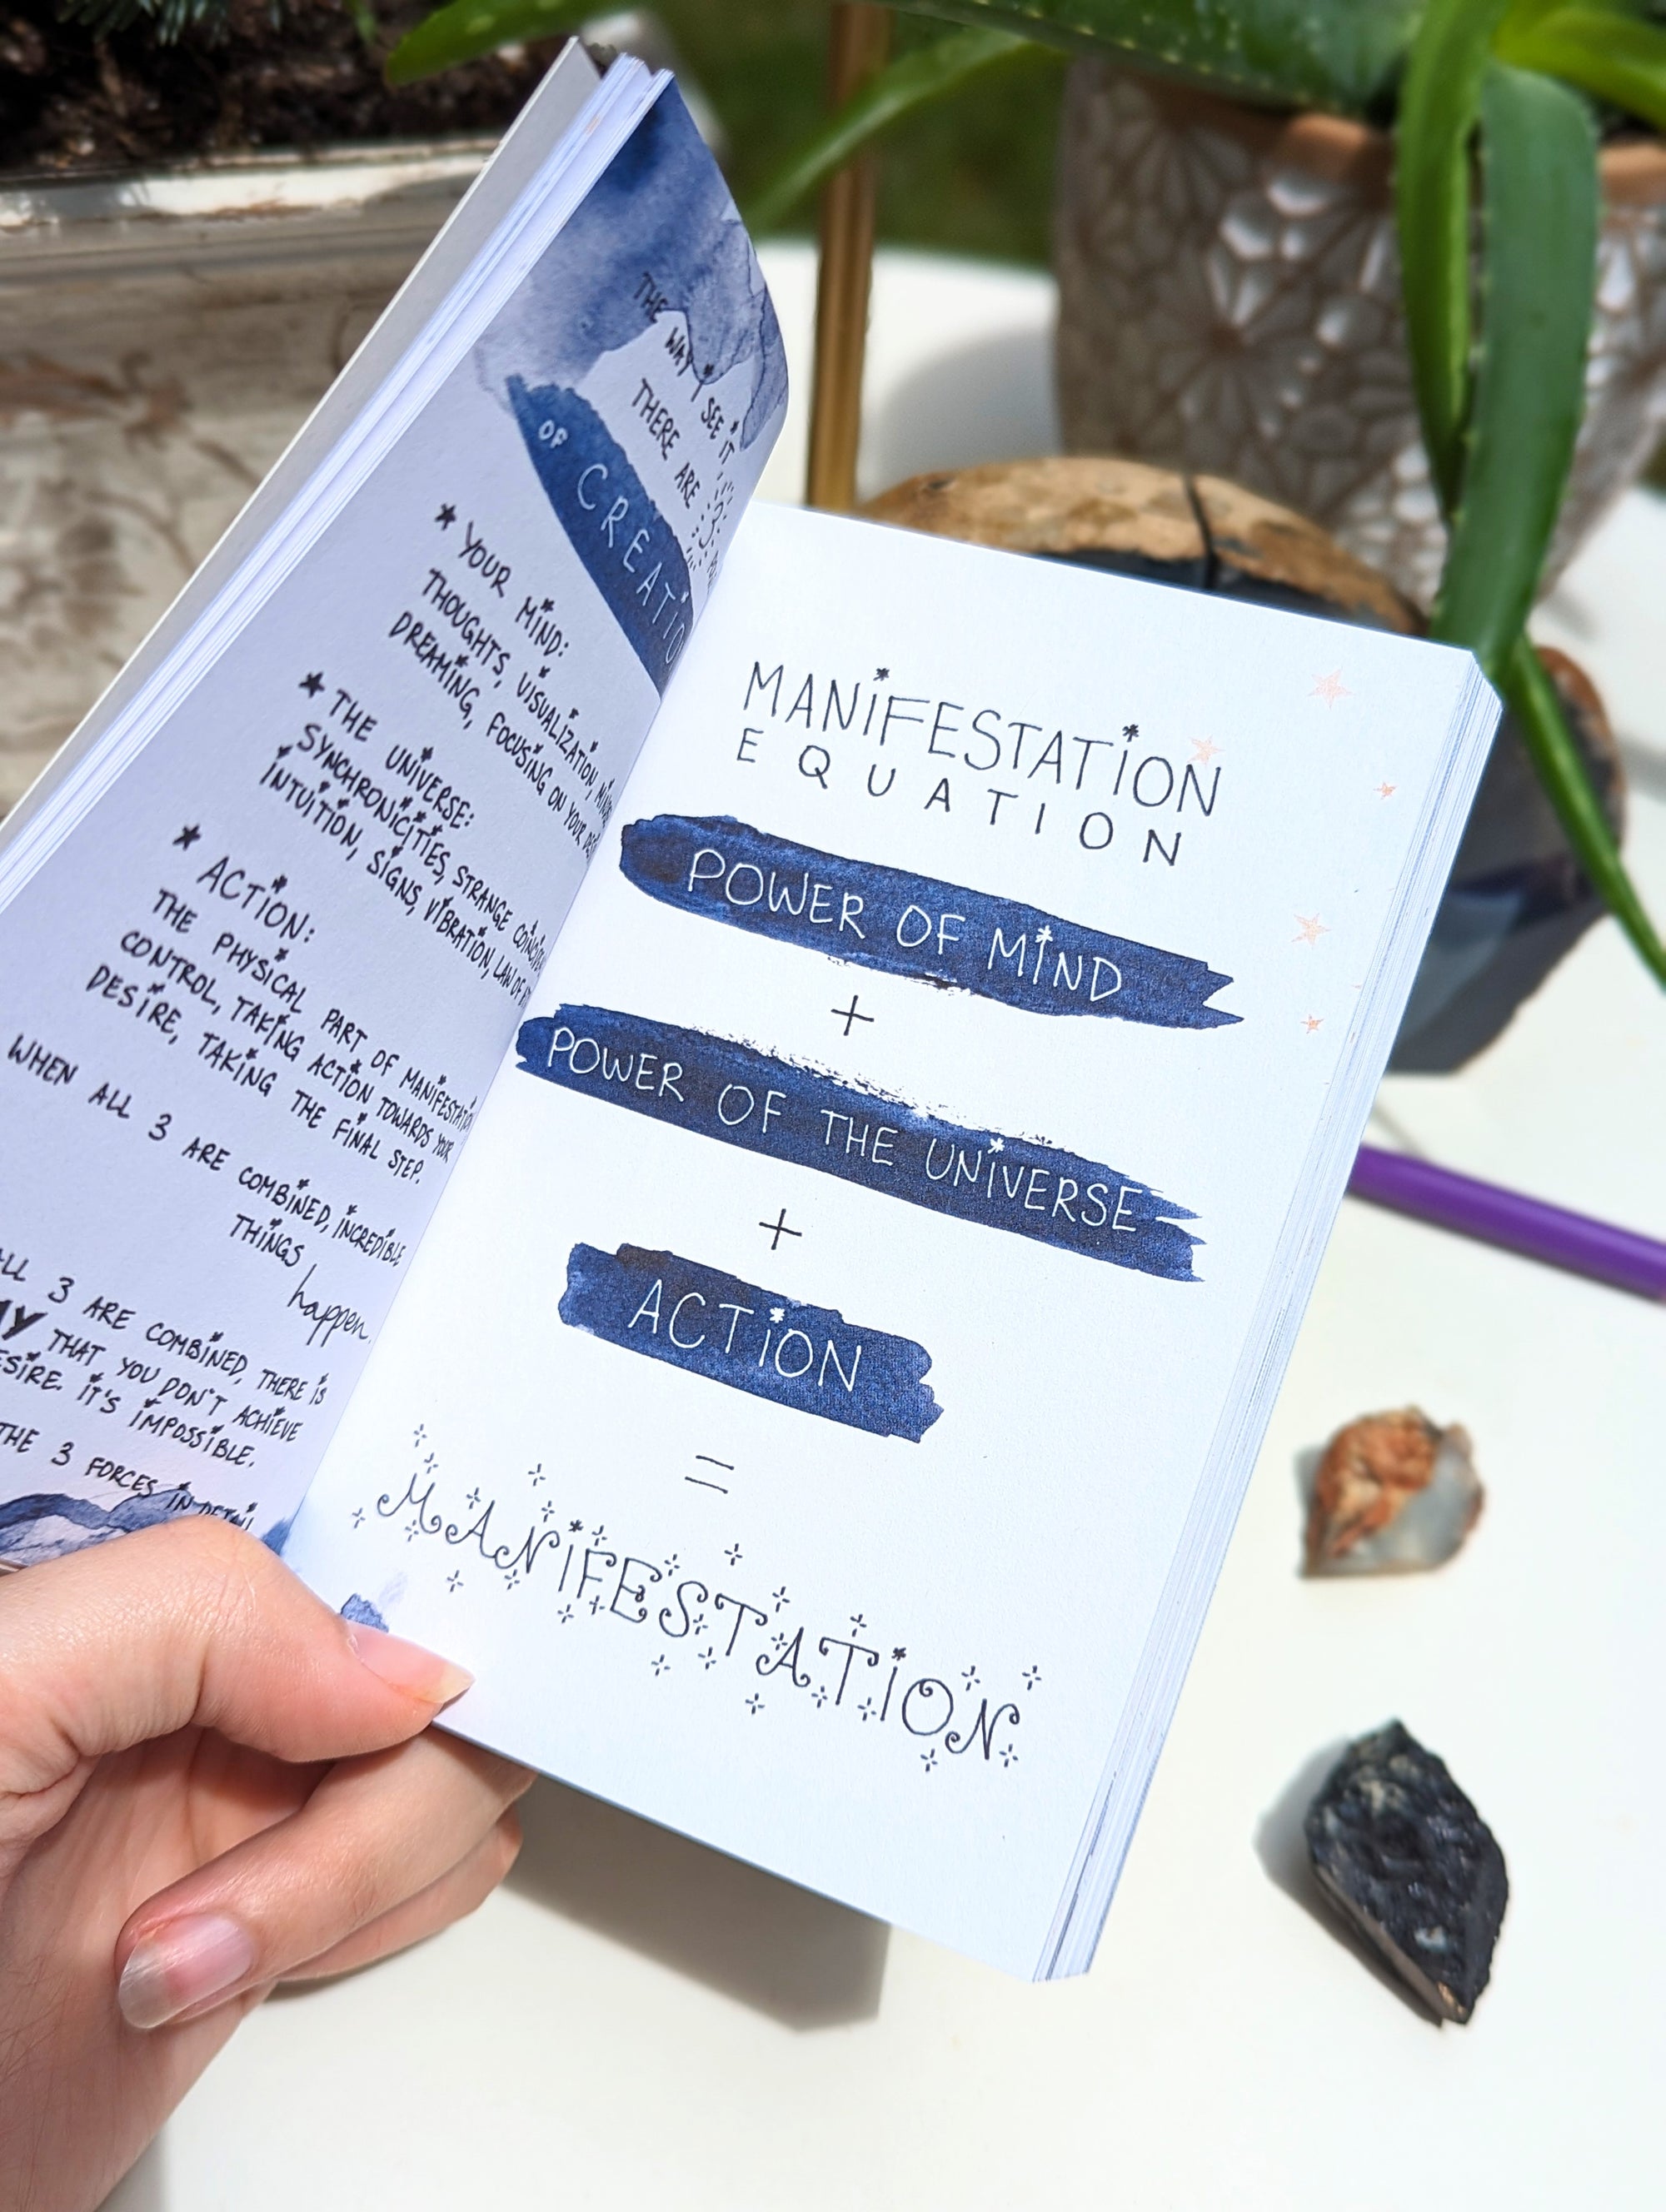 THE WAY I SEE IT
THERE ARE 3
OF CREATIO
* YOUR MIND:
THOUGHTS, VISUALIZATION,
DREAMING, FOCUSING ON YOUR
* THE UNIVERSE:
SYNCHRONICITIES, STRANGE
INTUITION, SIGNS, VIBRATION, LAW OF
* ACTION:
THE PHYSICAL PART OF MANIFESTATION
CONTROL, TAKING ACTION TOWARDS YOUR
DESIRE, TAKING THE FINAL STEP.
WHEN ALL 3 ARE COMBINED, INCREDIBLE
THINGS
happen.
ALL 3 ARE COMBINED, THERE IS
THAT YOU DON'T ACHIEVE
IT'S IMPOSSIBLE.
THE 3 FORCES IN DETAIL
MANIFESTATION
EQUATION
POWER OF MIND
+
POWER OF THE UNIVERSE
+
ACTION
=
MANIFESTATION